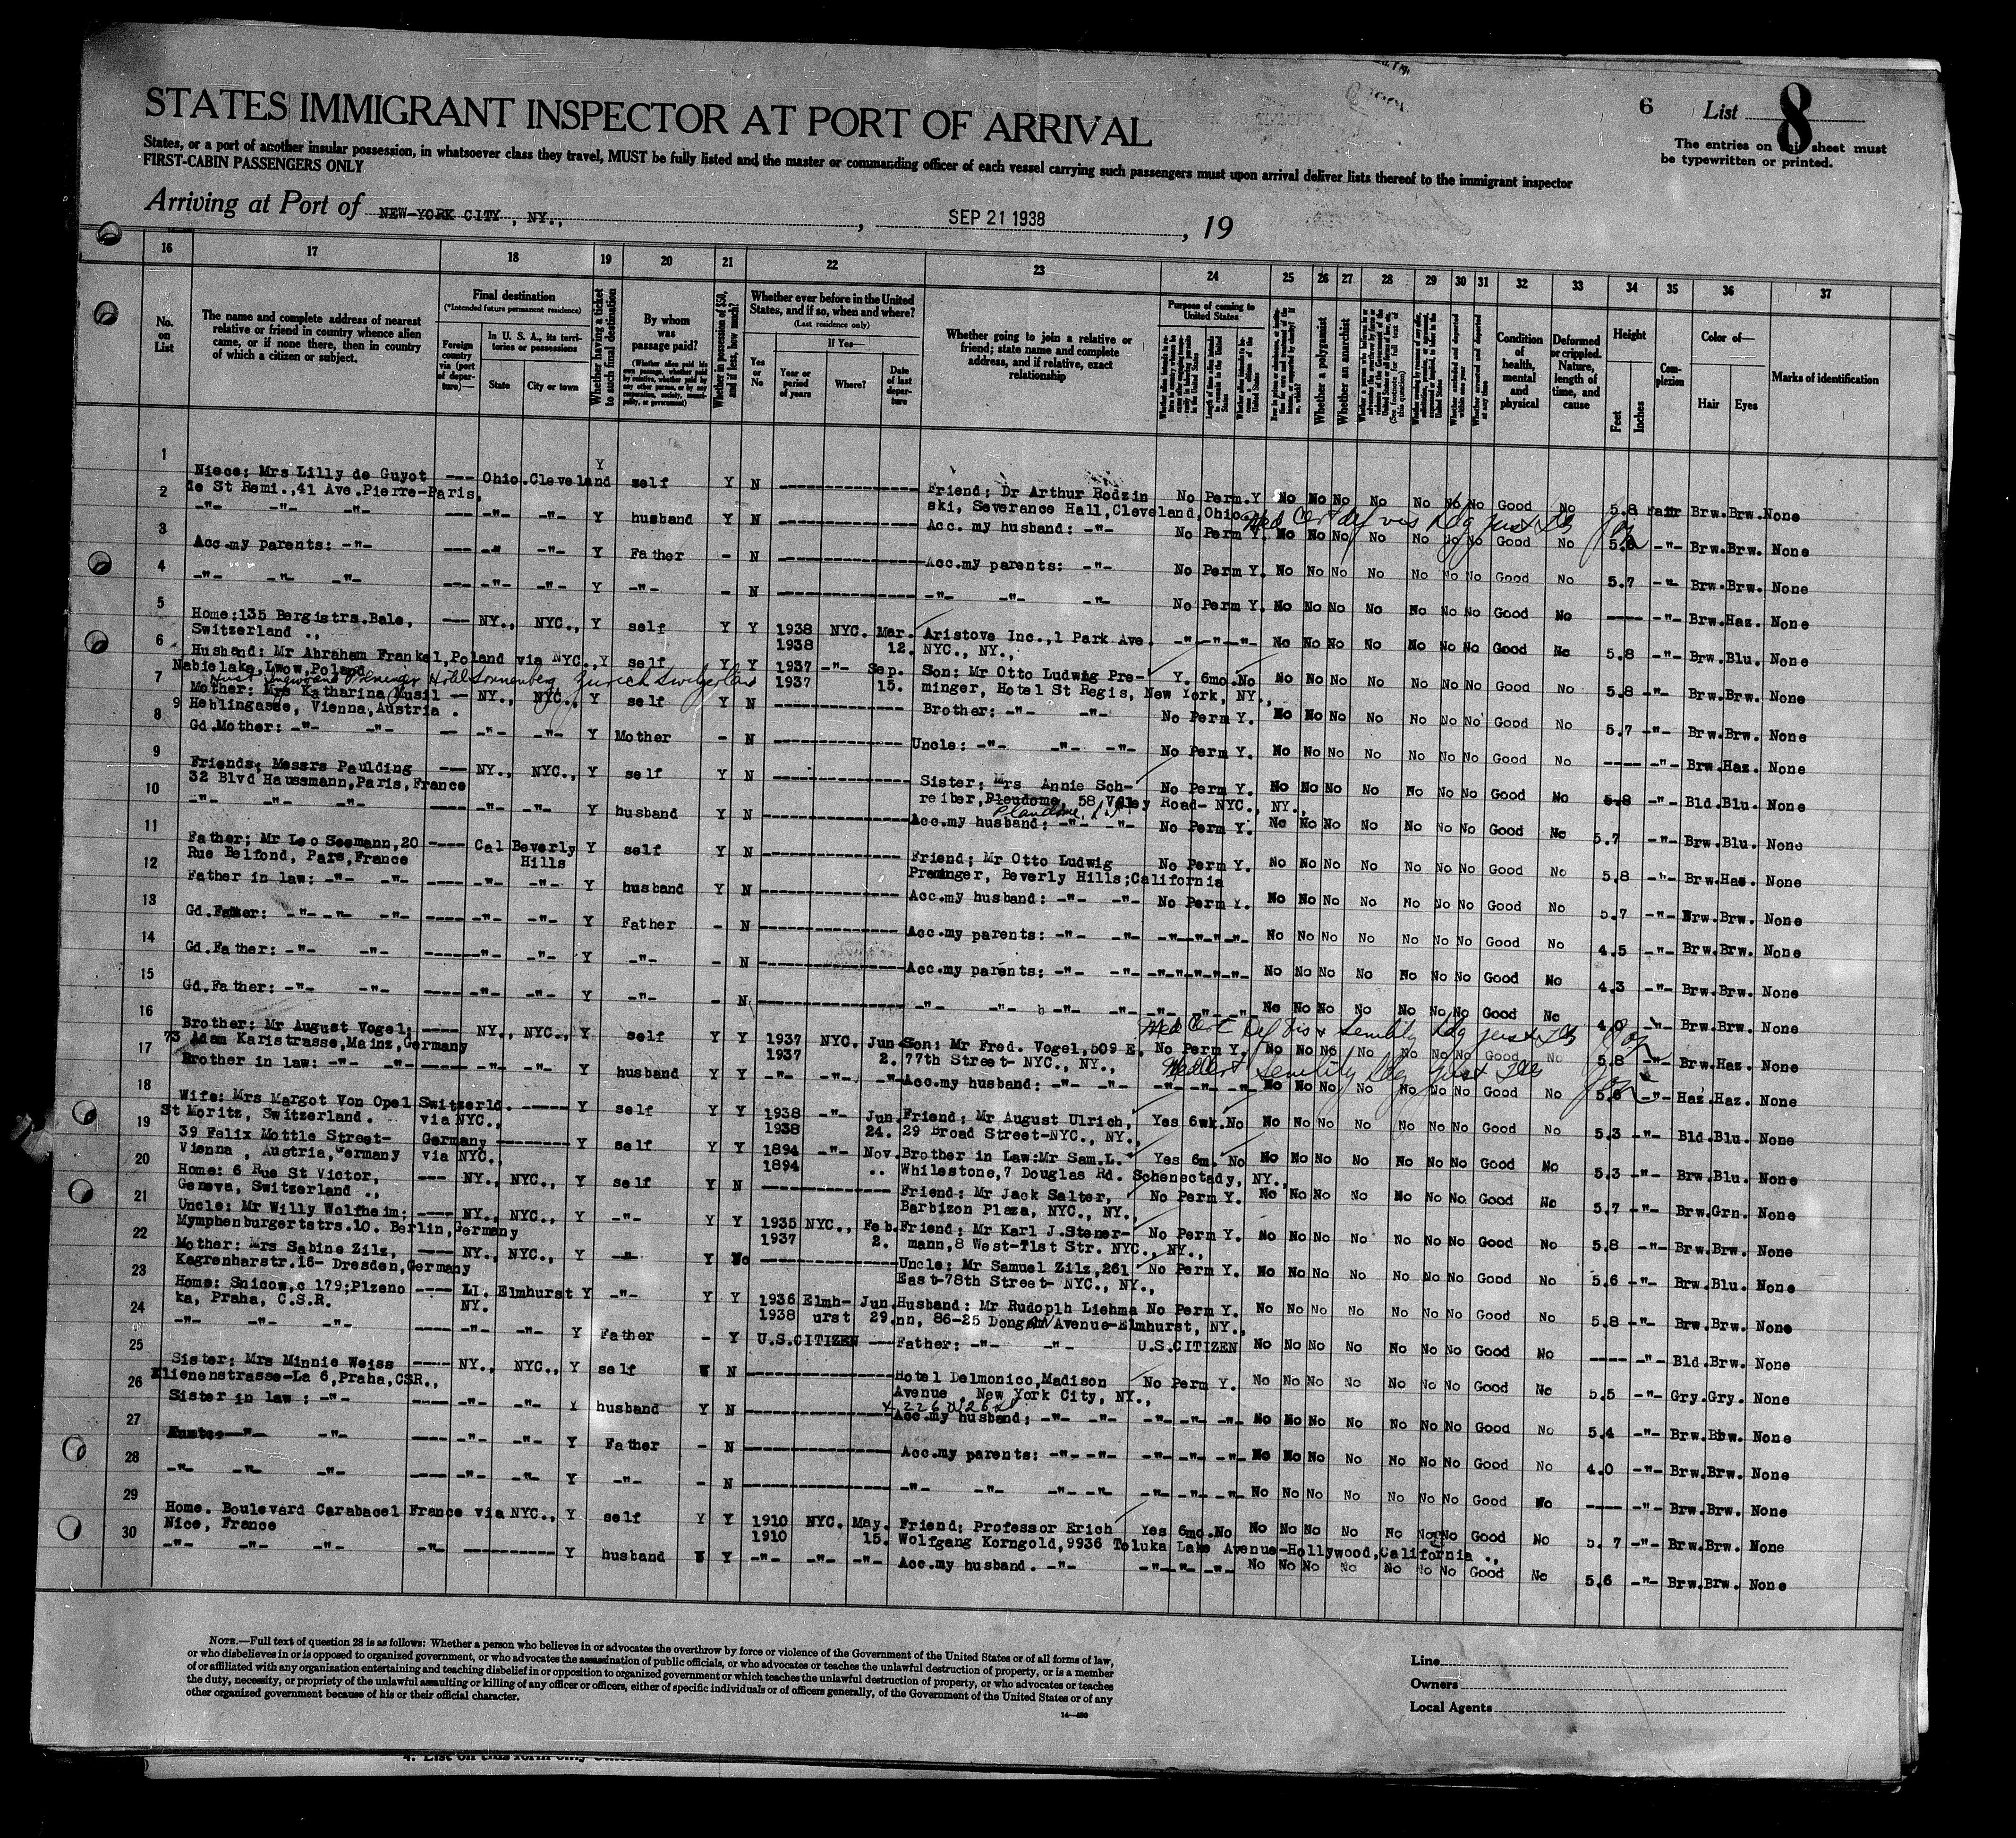 STATES IMMIGRANT INSPECTOR AT PORT OF ARRIVAL
6 List 8
The entries on this sheet must
be typewritten or printed.
States, or a port of another insular possession, in whatsoever class they travel, MUST be fully listed and the master or commanding officer of each vessel carrying such passengers must upon arrival deliver lists thereof to the immigrant inspector
FIRST-CABIN PASSENGERS ONLY
Arriving at Port of NEW-YORK CITY , NY., , SEP 21 1938 , 19
16 17 18 19 20 21 22 23 24 25 26 27 28 29 30 31 32 33 34 35 36 37
No. on List
The name and complete address of nearest relative or friend in country whence alien came, or if none there, then in country of which a citizen or subject.
Final destination
(*Intended future permanent residence)
Foreign country via (port of departure)—
In U. S. A., its territories or possessions
State
City or town
Whether having a ticket to such final destination
By whom was passage paid?
(Whether alien paid his own passage, whether paid by relative, whether paid by any other person, or by any corporation, society, municipality, or government)
Whether in possession of $50, and if less, how much?
Whether ever before in the United States, and if so, when and where?
(Last residence only)
Yes or No
If Yes—
Year or period of years
Where?
Date of last departure
Whether going to join a relative or friend; state name and complete address, and if relative, exact relationship
Purpose of coming to United States
Whether a polygamist
Whether an anarchist
(See footnote for full text of this question)
Condition of health, mental and physical
Deformed or crippled. Nature, length of time, and cause
Height
Feet
Inches
Complexion
Color of—
Hair
Eyes
Marks of identification
1 Niece; Mrs Lilly de Guyot --- Ohio.Cleveland Y self Y N Friend; Dr Arthur Rodzin No Perm.Y No No No No No No No Good No 5.8 Fair Brw.Brw.None
de St Remi.,41 Ave.Pierre-Paris, ski, Severance Hall,Cleveland,Ohio
2 -"- -"- -"- --- -"- -"- Y husband Y N Acc. my husband: -"- No Perm Y. No No No No No No No Good No -"- Brw.Brw. None
3 Acc.my parents: -"- --- -"- -"- Y Father - N Acc.my parents: -"- No Perm Y. No No No No No No No Good No 5.7 -"- Brw.Brw. None
4 -"- -"- -"- --- -"- -"- Y -"- - N -"- -"- -"- No Perm Y. No No No No No No No Good No ---- -"- Brw.Haz. None
5 Home:135 Bergistrs.Bale, --- NY., NYC., Y self Y Y 1938 NYC. Mar. Aristove Inc.,1 Park Ave. -"- -"- -"- No No No No No No No Good No 5.8 -"- Brw.Blu. None
Switzerland ., 1938 12. NYC., NY.,
6 Husband: Mr Abraham Frankel,Poland via NYC.,Y self Y Y 1937 -"- Sep. Son: Mr Otto Ludwig Pre- Y. 6mo.No No No No No No No No Good No 5.8 -"- Brw.Brw. None
Nabielaka,Lwow,Poland 1937 15. minger, Hotel St Regis, New York, NY.,
Hotel Sonnenberg Zurich Switzerland
7 Mother: Mrs Katharina Musil --- NY., NYC., Y self Y N Brother: -"- -"- No Perm Y. No No No No No No No Good No 5.7 -"- Brw.Brw. None
9 Heblingasse, Vienna,Austria .
8 Gd.Mother: -"- -"- --- -"- -"- Y Mother - N Uncle: -"- -"- -"- No Perm Y. No No No No No No No Good No ---- -"- Brw.Haz. None
9 Friends; Messrs Paulding --- NY., NYC., Y self Y N Sister; Mrs Annie Sch- No Perm Y. No No No No No No No Good No 5.8 -"- Bld.Blu. None
32 Blvd Haussmann,Paris,France reiber,Pleudome, 58 Valley Road- NYC., NY.,
Plandome
10 -"- -"- -"- ---- -"- -"- Y husband Y N Acc.my husband; -"- -"- No Perm Y. No No No No No No No Good No 5.7 -"- Brw.Blu. None
11 Father; Mr Leo Seemann,20 ---- Cal Beverly Y self Y N Friend; Mr Otto Ludwig No Perm Y. No No No No No No No Good No 5.8 -"- Brw.Haz. None
Rue Belfond, Pars,France Hills Preminger, Beverly Hills;California
12 Father in law: -"- -"- ---- -"- -"- Y husband Y N Acc.my husband: -"- -"- No Perm Y. No No No No No No No Good No 5.7 -"- Brw.Brw. None
13 Gd.Father: -"- -"- -"- ---- -"- -"- Y Father - N Acc.my parents: -"- -"- -"- -"- -"- No No No No No No No Good No 4.5 -"- Brw.Brw. None
14 Gd.Father: -"- -"- ---- -"- -"- Y -"- - N Acc.my parents: -"- -"- -"- -"- -"- No No No No No No No Good No 4.3 -"- Brw.Brw. None
15 Gd.Father: -"- -"- ---- -"- -"- Y -"- - N -"- -"- -"- -"- -"- -"- -"- No No No No No No No Good No 4.0 -"- Brw.Brw. None
16 Brother: Mr August Vogel; ---- NY., NYC., Y self Y Y 1937 NYC. Jun. Son: Mr Fred. Vogel,509 E. No Perm Y. No No No No No No No Good No 5.8 -"- Brw.Haz. None
73 Adam Karistrasse,Mainz,Germany 1937 2. 77th Street- NYC., NY.,
17 Brother in law: -"- -"- ---- -"- -"- Y husband Y Y -"- -"- -"- Acc.my husband: -"- -"- -"- -"- -"- No No No No No No No Good No -"- Haz.Haz. None
Med Cert senility
18 Wife: Mrs Margot Von Opel Switzerld. ----- Y self Y Y 1938 -"- Jun. Friend; Mr August Ulrich, Yes 6wk.No No No No No No No No Good No 5.3 -"- Bld.Blu. None
St Moritz, Switzerland. via NYC., 1938 24. 29 Broad Street-NYC., NY.,
19 39 Felix Mottle Street- Germany -------- Y self Y Y 1894 -"- Nov. Brother in Law:Mr Sam.L. Yes 6m. No No No No No No No No Good No 5.3 -"- Brw.Blu. None
Vienna , Austria,Germany via NYC., 1894 .. Whilestone,7 Douglas Rd. Schenectady, NY.,
20 Home: 6 Rue St Victor, --- NY., NYC., Y self Y N Friend: Mr Jack Salter, No Perm Y. No No No No No No No Good No 5.7 -"- Brw.Grn. None
Geneva, Switzerland ., Barbizon Plaza, NYC., NY.,
21 Uncle: Mr Willy Wolfheim; ---- NY., NYC., Y -"- Y Y 1935 NYC., Feb. Friend; Mr Karl J.Stener- No Perm Y. No No No No No No No Good No 5.8 -"- Brw.Brw. None
Mymphenburgertstrs.10. Berlin,Germany 1937 2. mann,8 West-71st Str. NYC., NY.,
22 Mother: Mrs Sabine Zilz, ---- NY., NYC., Y -"- Y No Uncle: Mr Samuel Zilz,261 No Perm Y. No No No No No No No Good No 5.6 -"- Brw.Blu. None
Kagrenharstr.16- Dresden,Germany East-78th Street- NYC., NY.,
23 Home: Snicow,c 179;Plzeno ---- LI. Elmhurst Y -"- Y Y 1936 Elmh- Jun. Husband: Mr Rudoplh Liehma No Perm Y. No No No No No No No Good No 5.8 -"- Brw.Brw. None
ka, Praha, C.S.R. NY. 1938 urst 29. nn, 86-25 Dongan Avenue-Elmhurst, NY.,
24 -"- -"- -"- ---- -"- -"- Y Father - Y U.S.CITIZEN --- Father: -"- -"- U.S.CITIZEN No No No No No No No Good No ---- -"- Bld.Brw. None
25 Sister; Mrs Minnie Weiss ---- NY., NYC., Y self Y N Hotel Delmonico,Madison No Perm Y. No No No No No No No Good No 5.5 -"- Gry.Gry. None
Klienenstrasse-La 6,Praha,CSR., Avenue , New York City, NY.,
26 Sister in law ; -"- ---- -"- -"- Y husband Y N Acc.my husband; -"- -"- -"- -"- -"- No No No No No No No Good No 5.4 -"- Brw.Brw. None
27 -"- -"- ---- -"- -"- Y Father - N Acc.my parents: -"- -"- -"- -"- -"- No No No No No No No Good No 4.0 -"- Brw.Brw. None
28 -"- -"- -"- ---- -"- -"- Y -"- - N -"- -"- -"- -"- -"- -"- -"- No No No No No No No Good No ---- -"- Brw.Brw. None
29 Home. Boulevard Carabacel France via NYC., Y self Y Y 1910 NYC. May. Friend; Professor Erich Yes 6mo.No No No No No No No No Good No 5. 7 -"- Brw.Brw. None
Nice, France 1910 15. Wolfgang Korngold,9936 Toluka Lake Avenue-Hollywood,California .,
30 -"- -"- -"- -"- ---------- Y husband Y Y -"- -"- -"- Acc.my husband. -"- -"- -"- -"- No No No No No No No Good No 5.6 -"- Brw.Brw. None
NOTE.—Full text of question 28 is as follows: Whether a person who believes in or advocates the overthrow by force or violence of the Government of the United States or of all forms of law,
or who disbelieves in or is opposed to organized government, or who advocates the assassination of public officials, or who advocates or teaches the unlawful destruction of property, or is a member
of or affiliated with any organization entertaining and teaching disbelief in or opposition to organized government or which teaches the unlawful destruction of property, or who advocates or teaches
the duty, necessity, or propriety of the unlawful assaulting or killing of any officer or officers, either of specific individuals or of officers generally, of the Government of the United States or of any
other organized government because of his or their official character.
14—480
Line
Owners
Local Agents